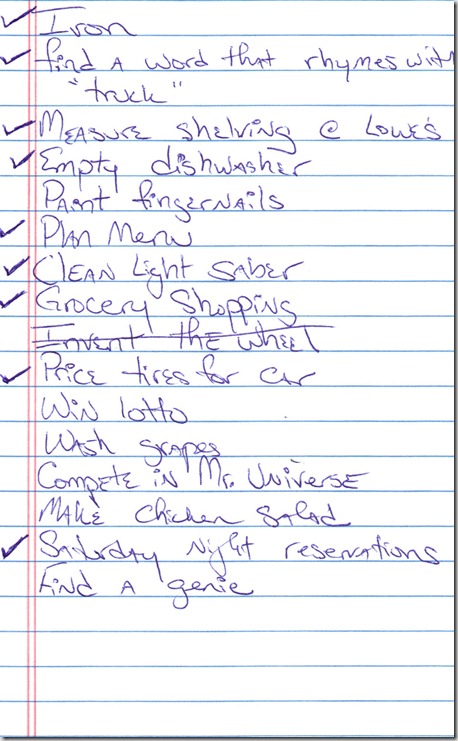 Iron
find a word that rhymes with
"truck"
Measure shelving @ Lowe's
Empty dishwasher
Paint fingernails
Plan Menu
Clean Light Saber
Grocery Shopping
Invent the wheel
Price tires for car
Win lotto
Wash grapes
Compete in Mr. Universe
Make chicken salad
Saturday night reservations
Find a genie